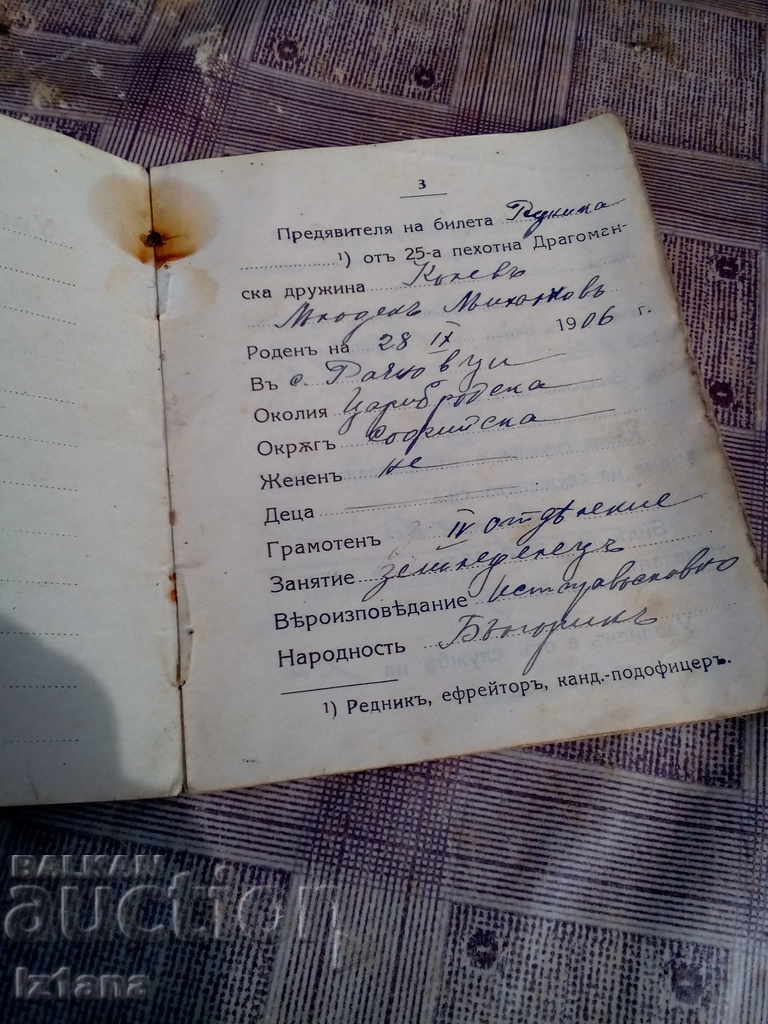 3
Предявителя на билета Редника
¹) отъ 25-а пехотна Драгоман-
ска дружина Колевъ
Младенъ Михайловъ
Роденъ на 28 IX 1906 г.
Въ с.
Околия Царибродска
Окрѫгъ Софийска
Жененъ не
Деца
Грамотенъ IV отдѣление
Занятие земледелецъ
Вѣроизповѣдание
Народность Българинъ
¹) Редникъ, ефрейторъ, канд.-подофицеръ.
BALKAN
auction
Iz1ana